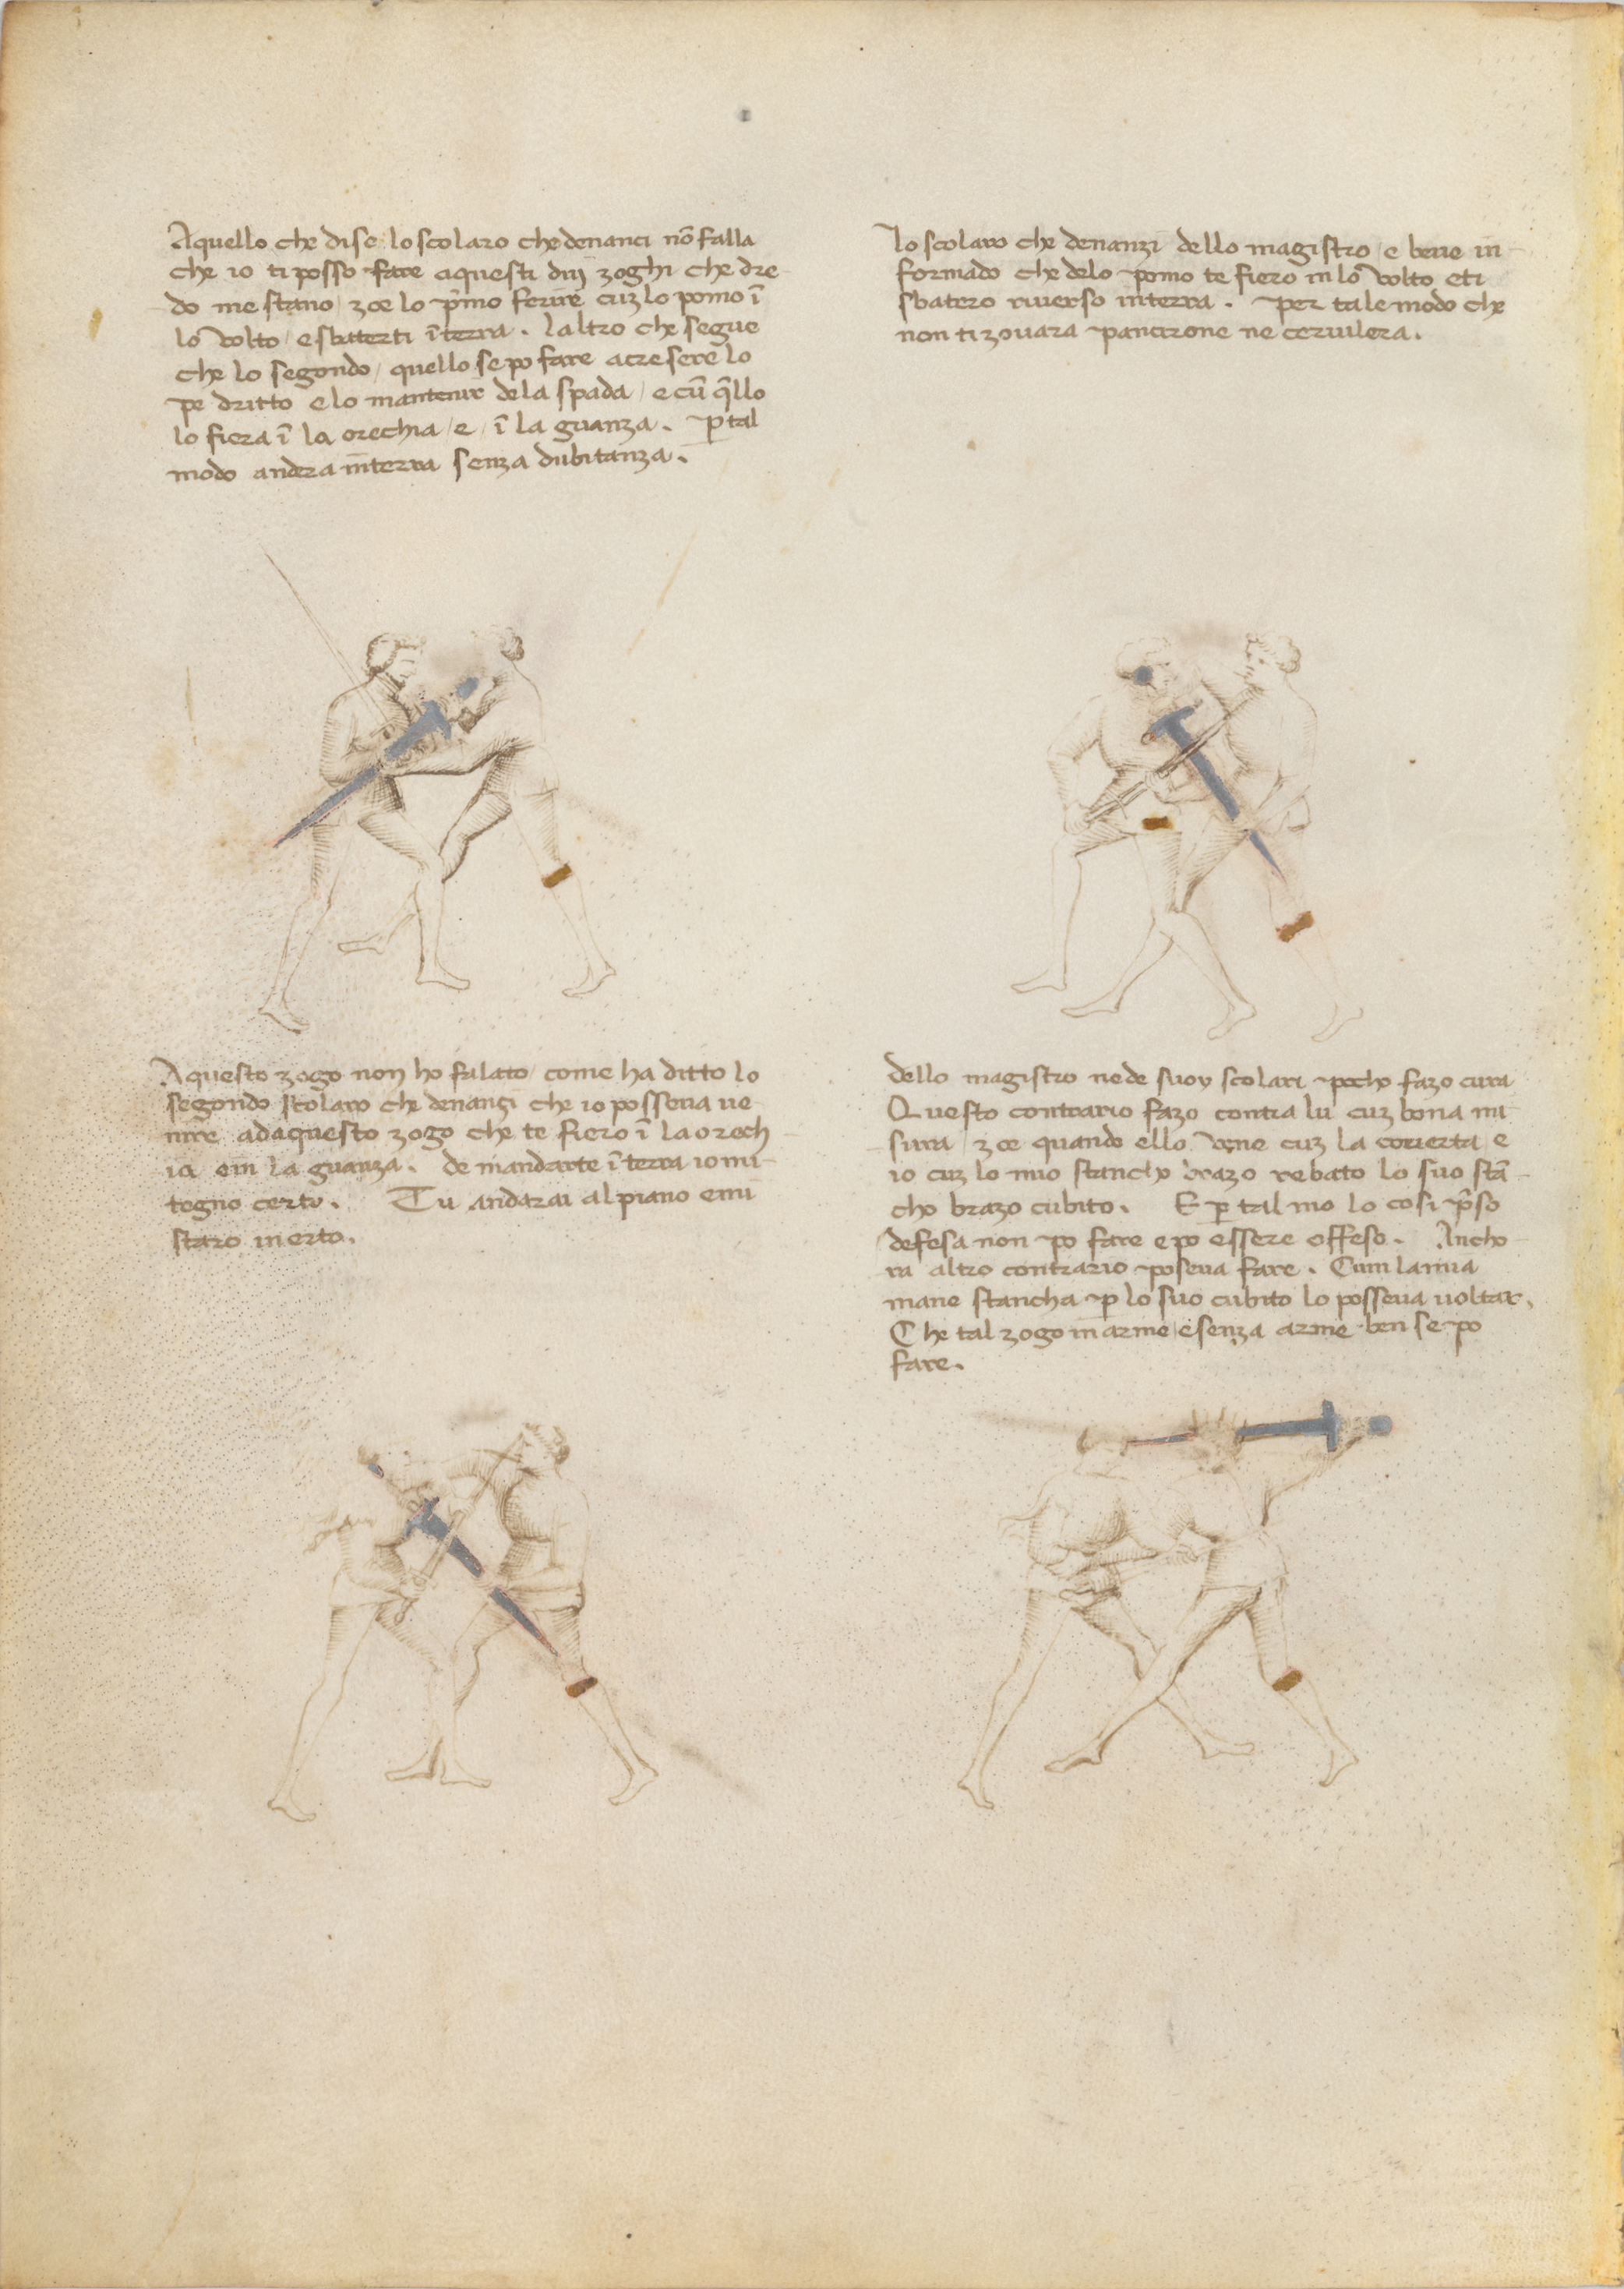 Aquello che dise lo scolaro che denanci nō falla
che io ti posso fare aquesti dui zoghi che dre
do me stano / zoe lo p̄mo ferire cuz lo pomo ī
lo volto / e sbaterti ī terra . laltro che segue
che lo segondo / quello se po fare acresere lo
pe dritto e lo mantenir dela spada / e cū q̄llo
lo fiera ī la orechia / e / ī la guanza . ꝑ tal
modo andra in terra senza dubitanza .
lo scolaro che denanzi dello magistro / e bene in
formado che delo pomo te fiero in lo volto e ti
sbatero riuerso in terra . per tale modo che
non ti zouara pancirone ne ceruilera .
Aquesto zogo non ho falato / come ha ditto lo
segondo scolaro che denanzi che io posseua ue
nire adaquesto zogo che te fiero ī la orech
ia e in la guanza . de mandarte ī terra io mi
tegno certo . Tu andarai al piano e mi
staro in erto .
dello magistro ne de suoy scolari pocho fazo cura
Questo contrario fazo contra lu cuz bona mi
sura / zoe quando ello vene cuz la couerta e
io cuz lo mio stancho brazo rebato lo suo stā
cho brazo cubito . E ꝑ tal mo lo cosi p̄so
defesa non po fare e po essere offeso . Ancho
ra altro contrario poseua fare . Cum la mia
mane stancha ꝑ lo suo cubito lo posseua uoltar .
Che tal zogo in arme / e senza arme ben se po
fare .